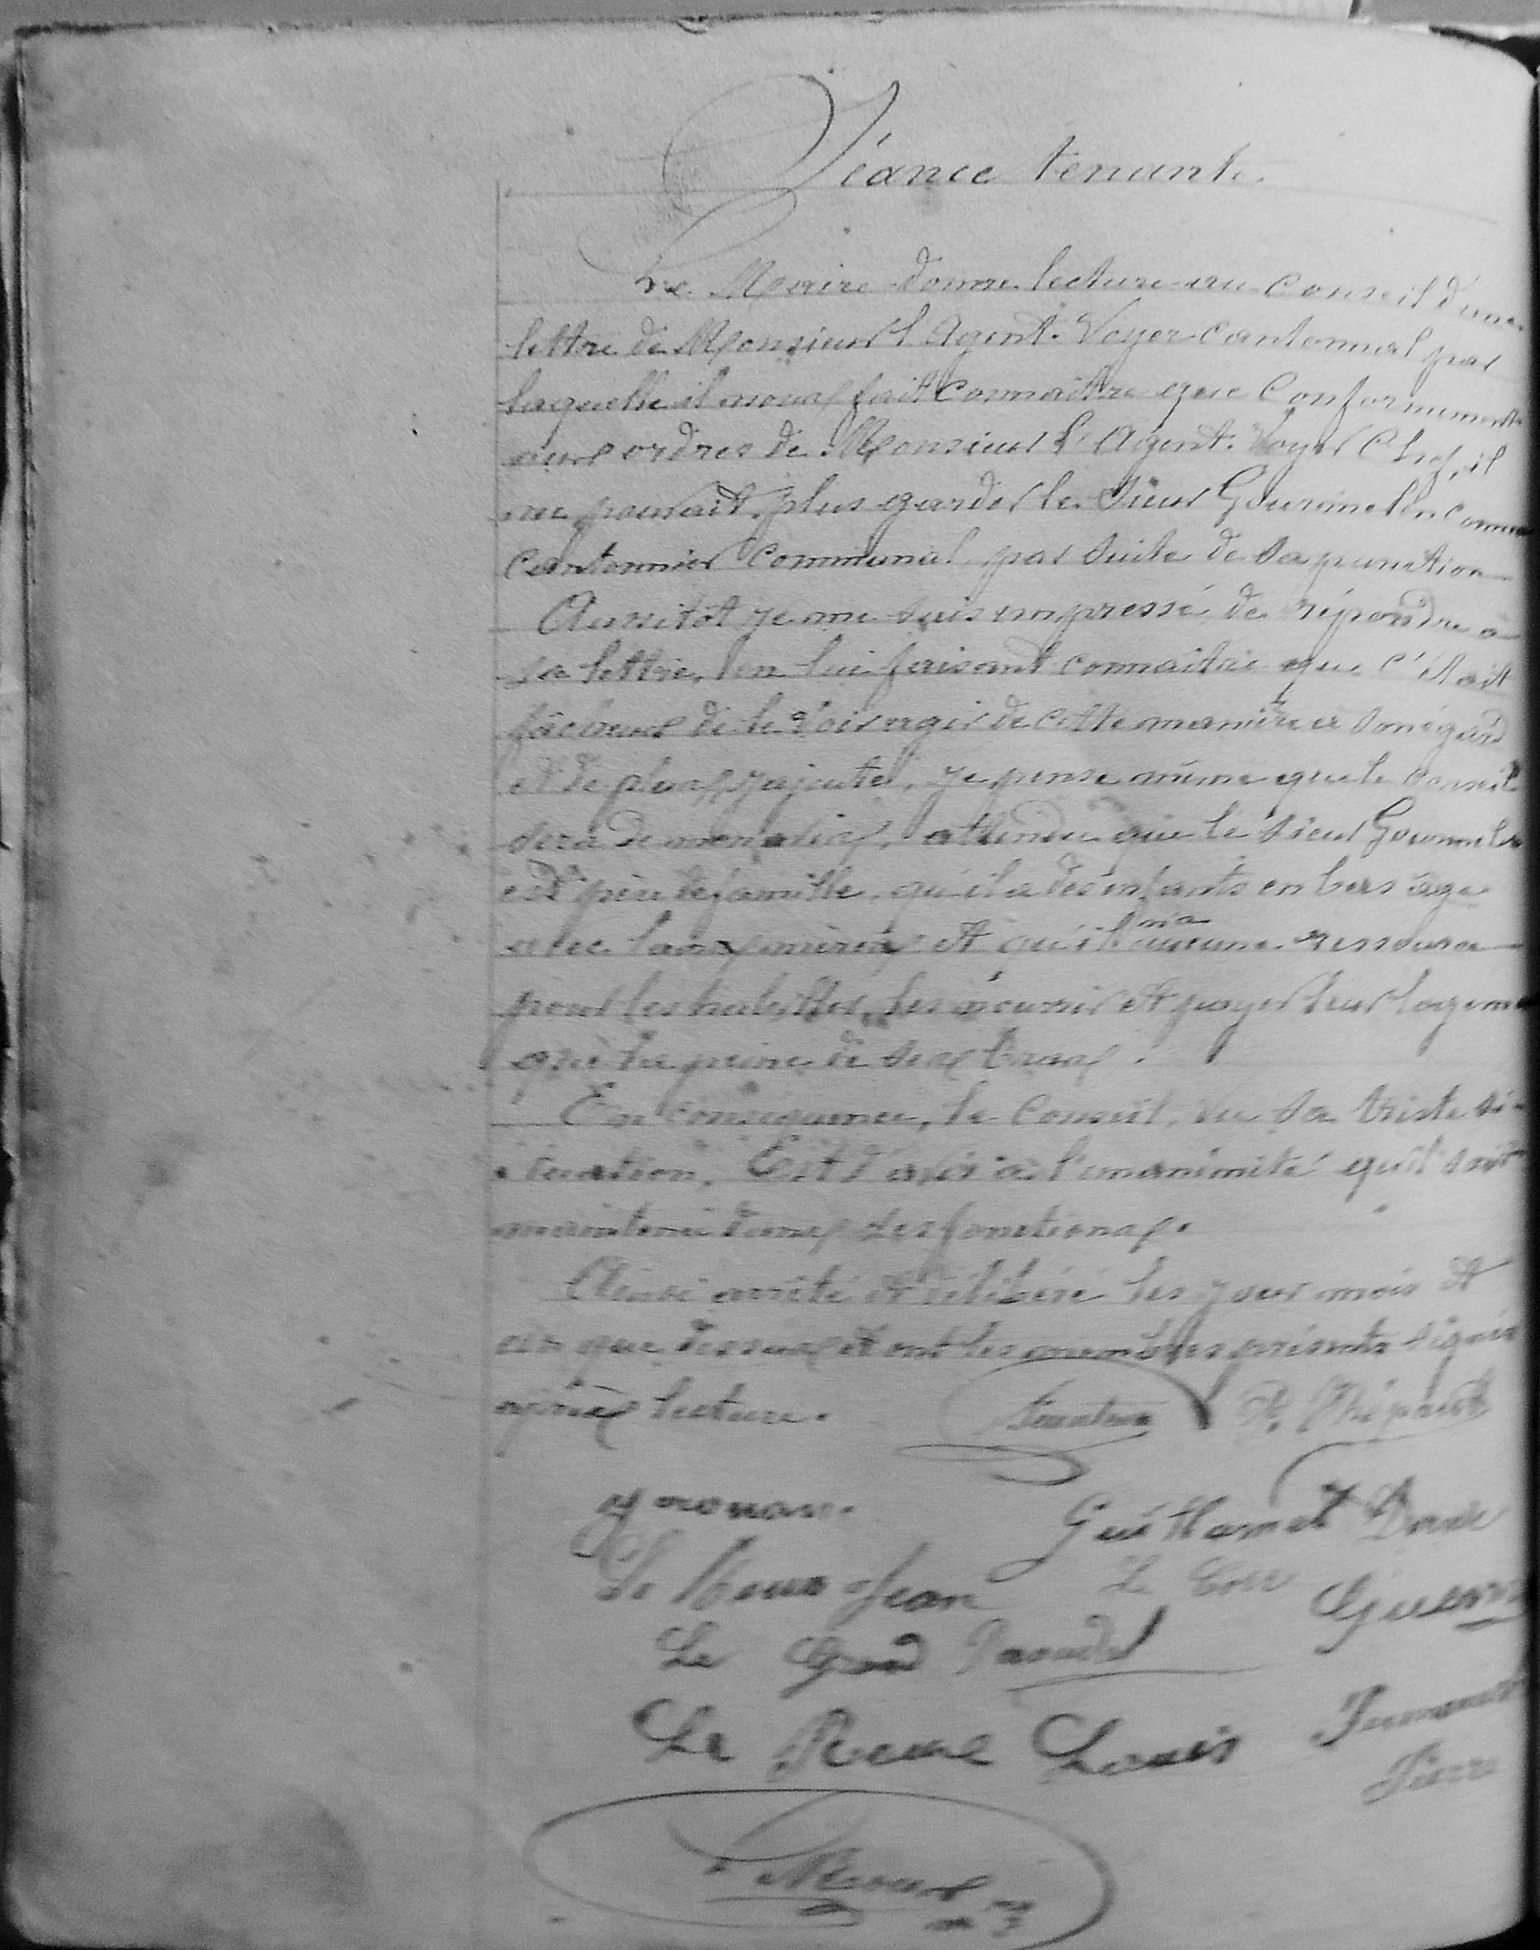 Séance tenante.
Le Maire donne lecture au Conseil d'une
lettre de Monsieur l'Agent-Voyer cantonnal par
laquelle il nous fait connaître que Conformément
aux ordres de Monsieur l'Agent-Voyer Chef, il
ne pouvait plus garder le Sieur Gourmelen comme
Cantonnier Communal par suite de sa punition
Aussitôt je me suis empressé de répondre à
sa lettre, en lui faisant connaître que c'était
fâcheux de le voir agir de cette manière à son égard
et de plus j'ajoute, je pense même que le Conseil
sera de mon avis, attendu que le sieur Gourmelen
est père de famille, qu'il a des enfants en bas âge
avec et qu'il n'a aucune ressource
pour les habiller, les nourrir et payer leur logement
qu'à la peine de ses bras.
En conséquence, le Conseil, vu sa triste si-
tuation, Est d'avis à l'unanimité qu'il soit
maintenu dans ses fonctions.
Ainsi arrêté et délibéré les jour mois et
an que dessus et ont les membres présents signé
après lecture.
Guillamet
Le Roux Jean Le Corr
Le Grand
Le Roux Louis
Pierre